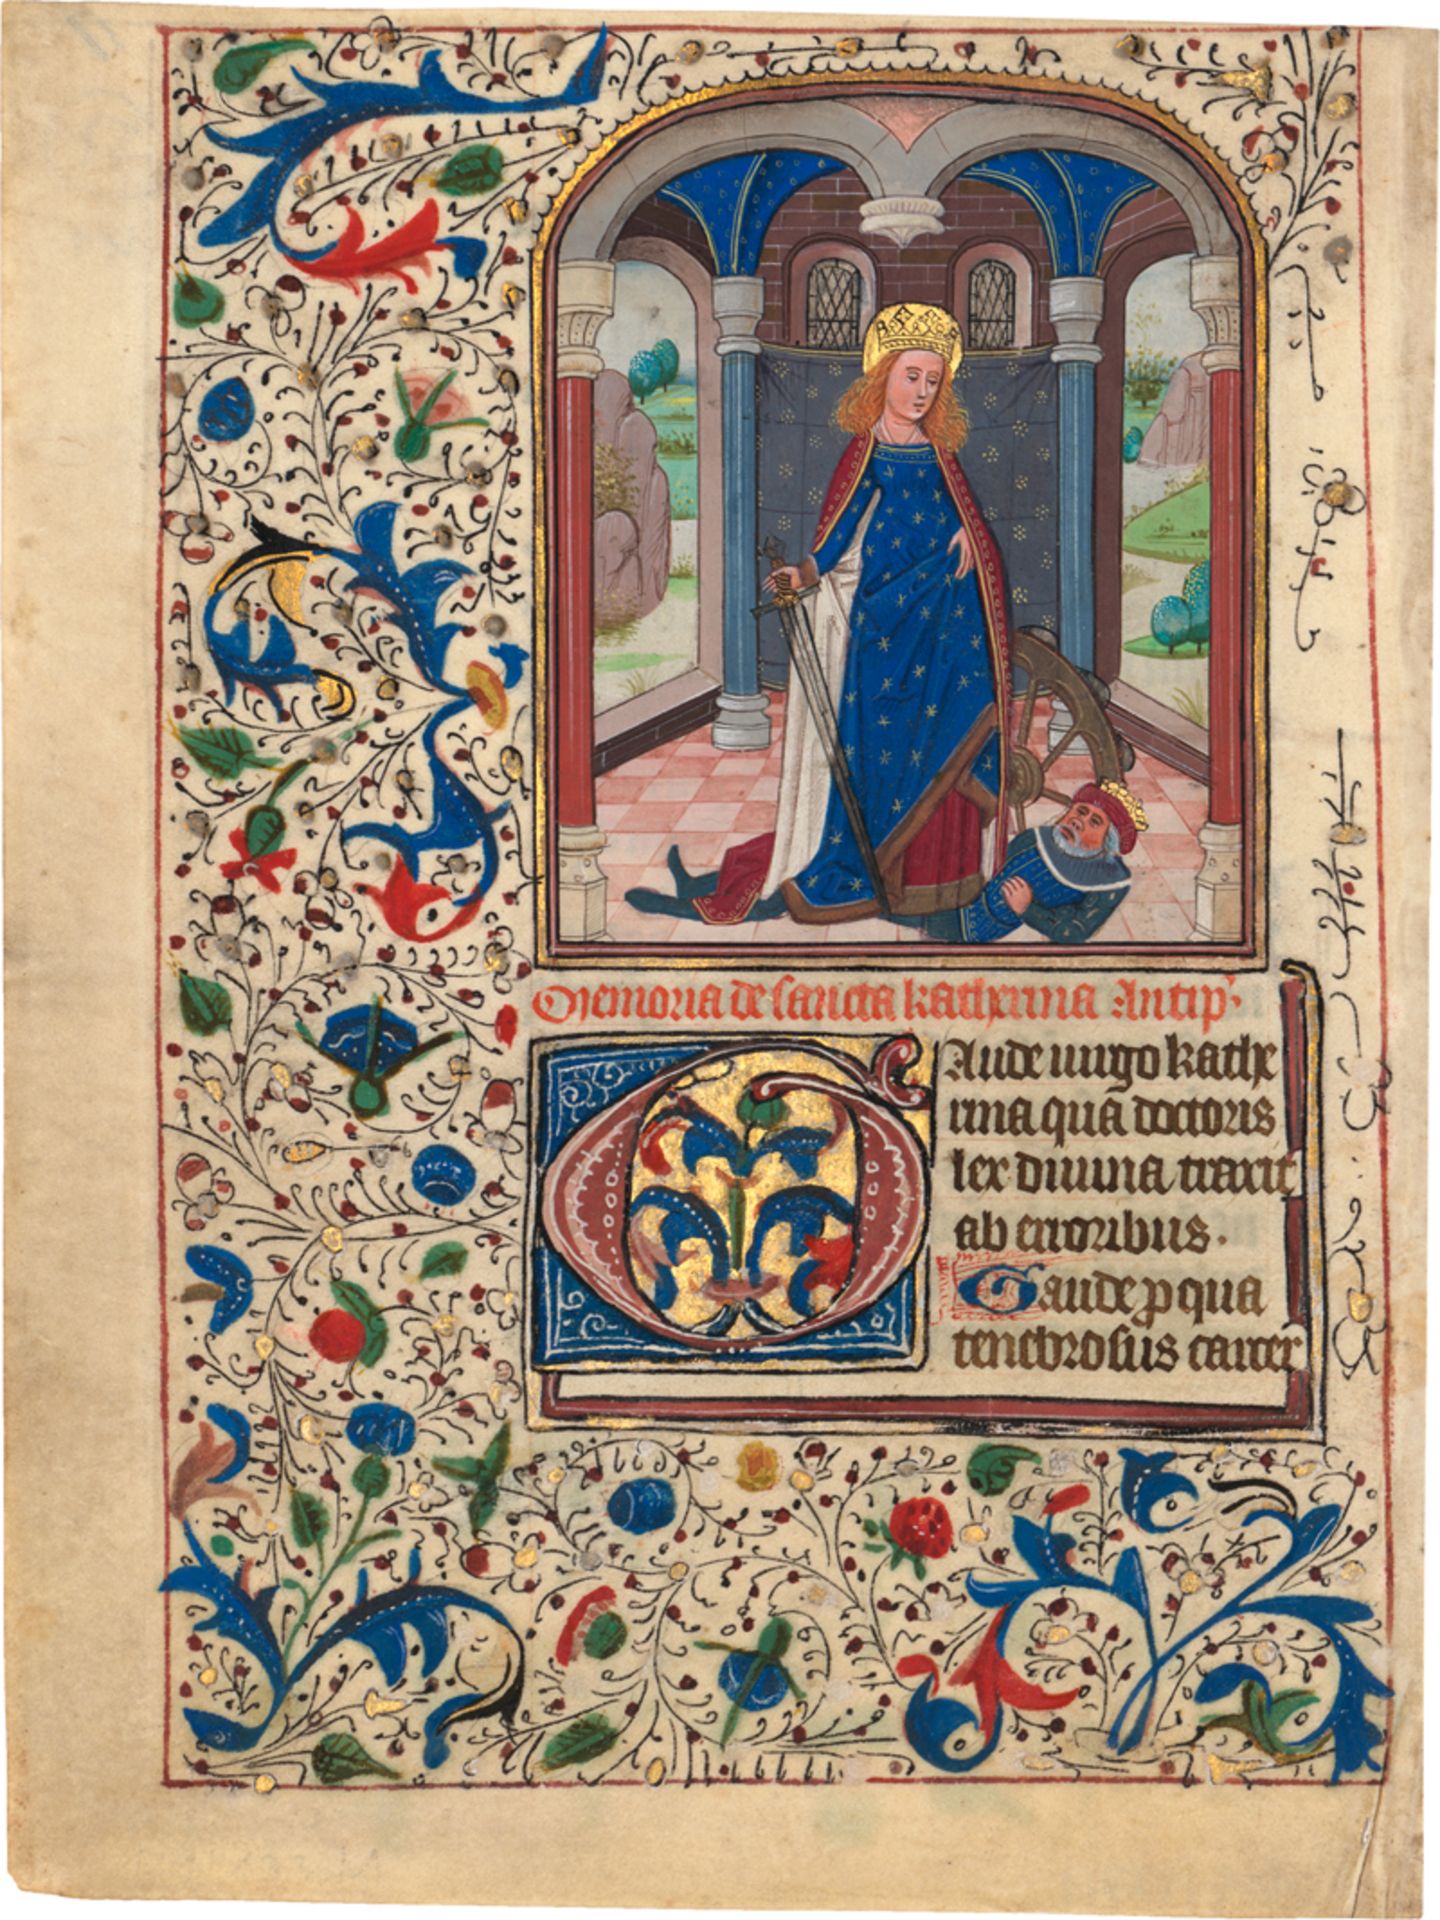 Memoria de sancta katherina Antip̄.
Gaude uirgo kathe
rina qua doctores
lex diuina traxit
ab erroribus.
Gaude p qua
tenebrosus carcer